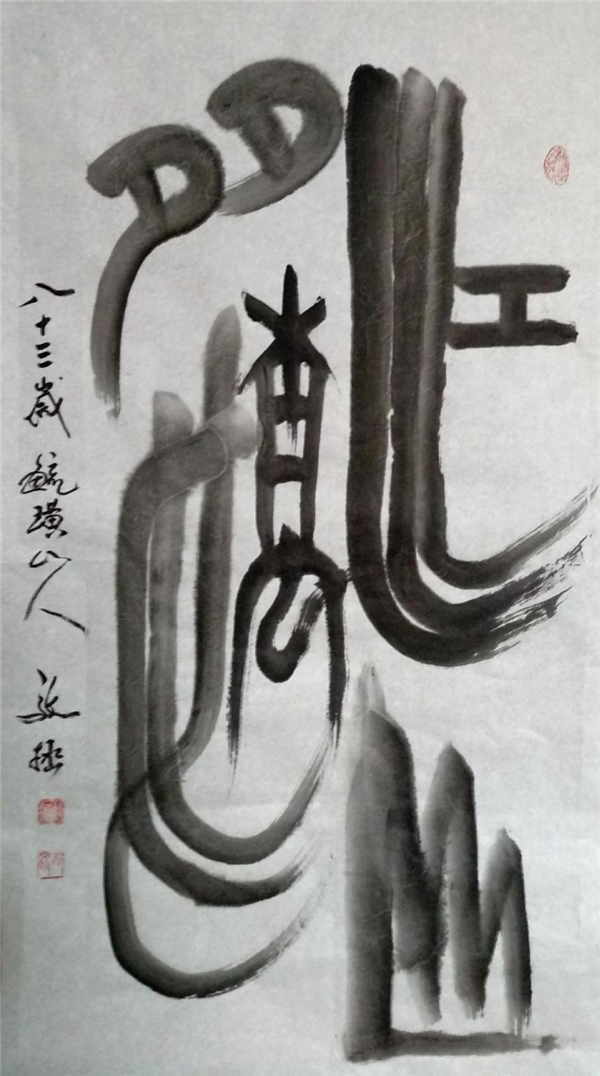 江山
多嬌
八十三歲 毓璜山人